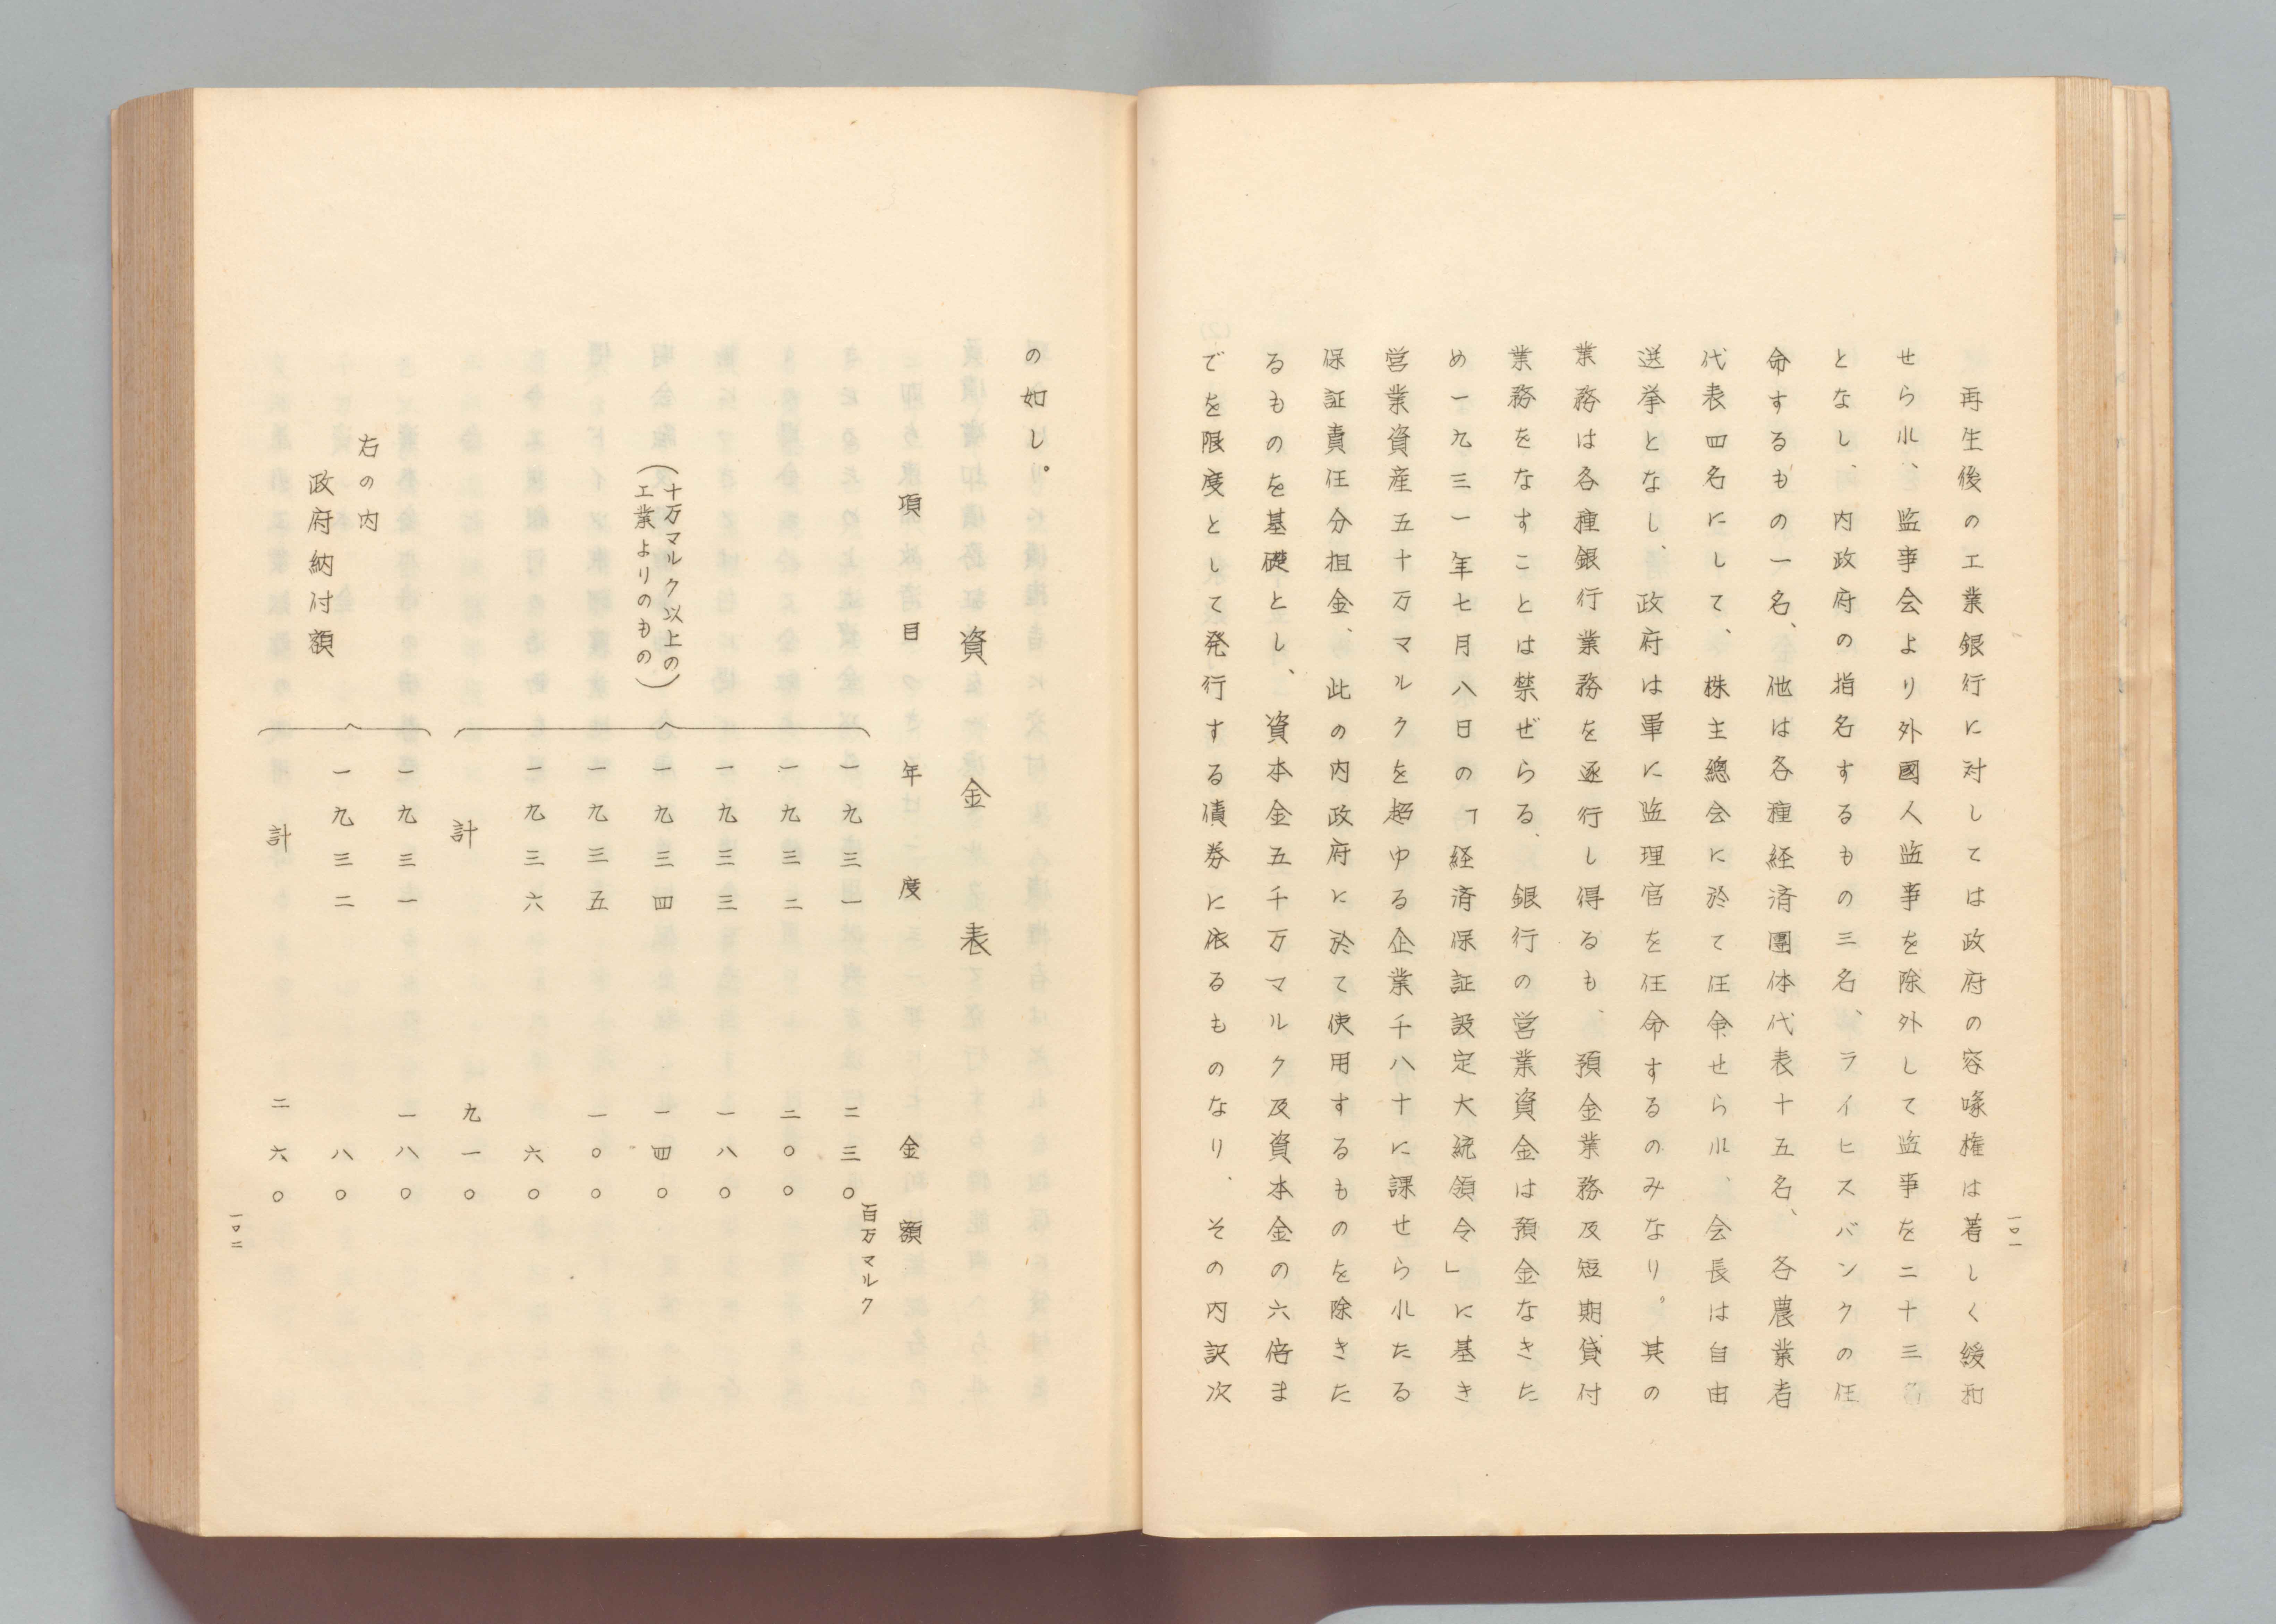 一〇一
再生後の工業銀行に対しては政府の容喙権は著しく緩和
せられ、監事会より外國人監事を除外して監事を二十三名
となし、内政府の指名するもの三名、ライヒスバンクの任
命するもの一名、他は各種経済團体代表十五名、各農業者
代表四名にして、株主總会に於て任命せられ、会長は自由
送挙となし、政府は單に監理官を任命するのみなり。其の
業務は各種銀行業務を逐行し得るも、預金業務及短期貸付
業務をなすことは禁ぜらる、銀行の営業資金は預金なきた
め一九三一年七月八日の「経済保証設定大統領令」に基き
営業資産五十万マルクを超ゆる企業千八十に課せられたる
保証責任分担金、此の内政府に於て使用するものを除きた
るものを基礎とし、資本金五千万マルク及資本金の六倍ま
でを限度として発行する債券に依るものなり、その内訳次
の如し。
資金表
項目 年度 金額
一九三一 二三〇百万マルク
一九三二 二〇〇
一九三三 一八〇
(十万マルク以上の)
(工業よりのもの)
一九三四 一四〇
一九三五 一〇〇
一九三六 六〇
計 九一〇
右の内
政府納付額
一九三一 一八〇
一九三二 八〇
計 二六〇
一〇二